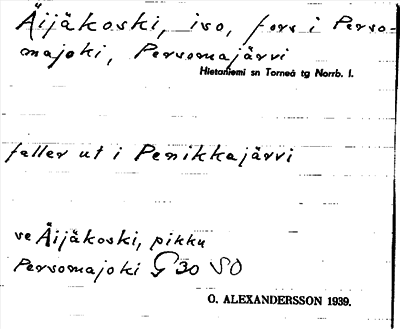 Äijäkoski, iso, fors i Perso-
majoki, Persomajärvi
Hietaniemi sn Torneå tg Norrb. l.
faller ut i Penikkajärvi
se Äijäkoski, pikku
Persomajoki G 30 SO
O. ALEXANDERSSON 1939.